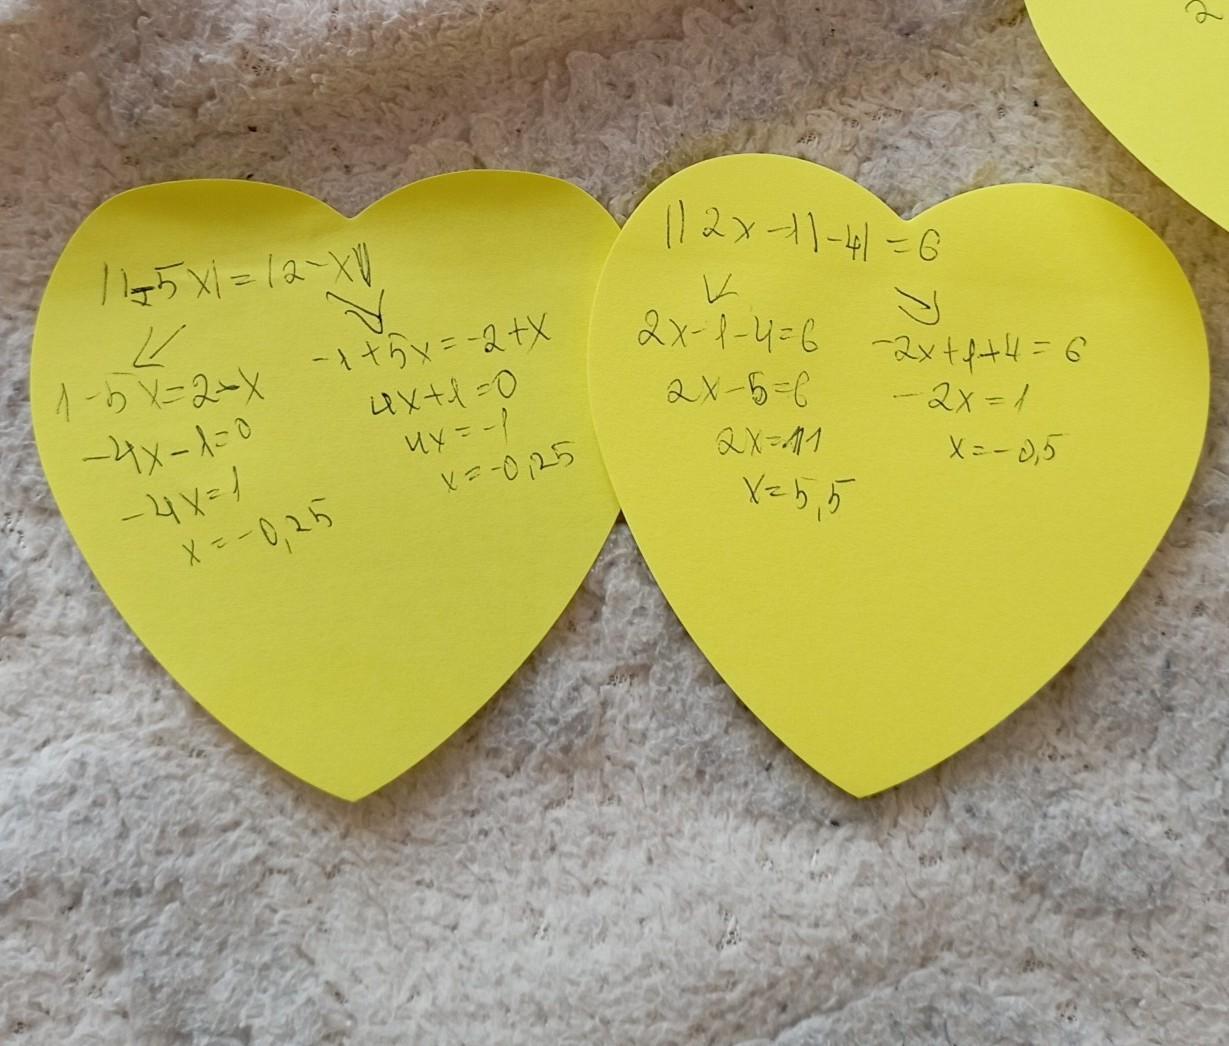 |1-5x|=|2-x|
1-5x=2-x
-4x-1=0
-4x=1
x=-0,25
-1+5x=-2+x
4x+1=0
4x=-1
x=-0,25
||2x-1|-4|=6
2x-1-4=6
2x-5=6
2x=11
x=5,5
-2x+1+4=6
-2x=1
x=-0,5
2